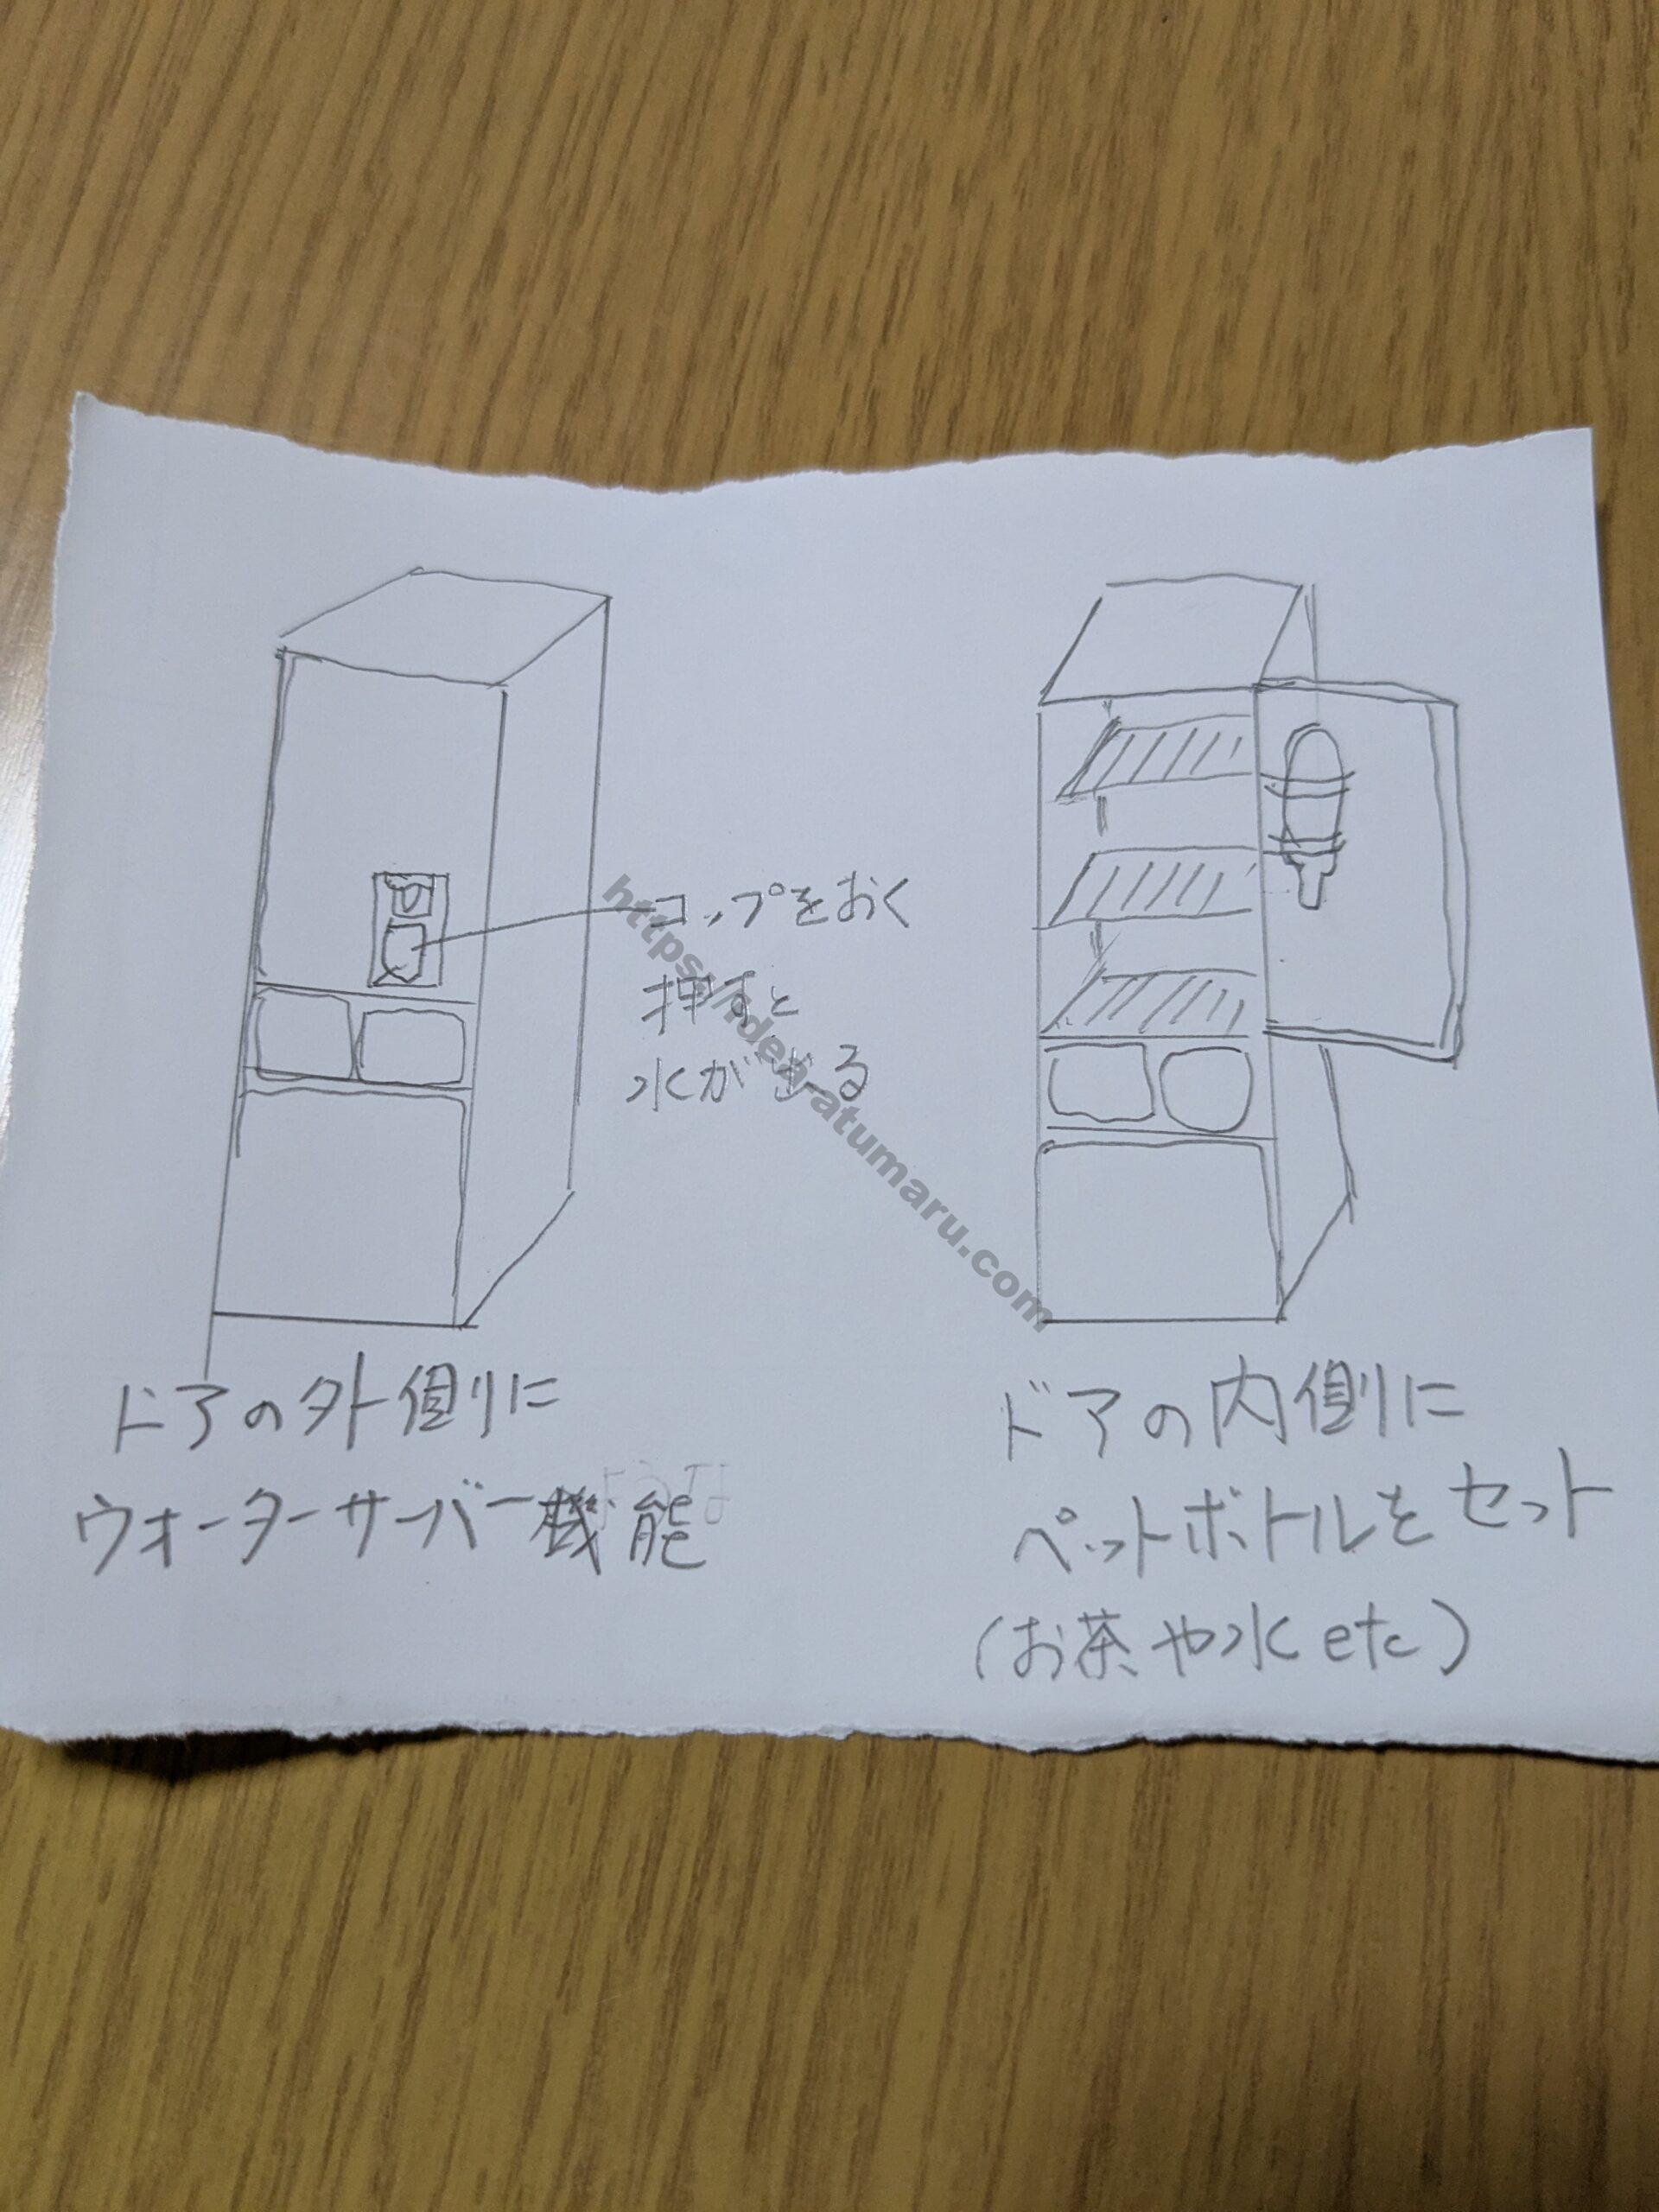 コップをおく
押すと
水がでる
ドアの外側に
ウォーターサーバー機能
ドアの内側に
ペットボトルをセット
(お茶や水etc)